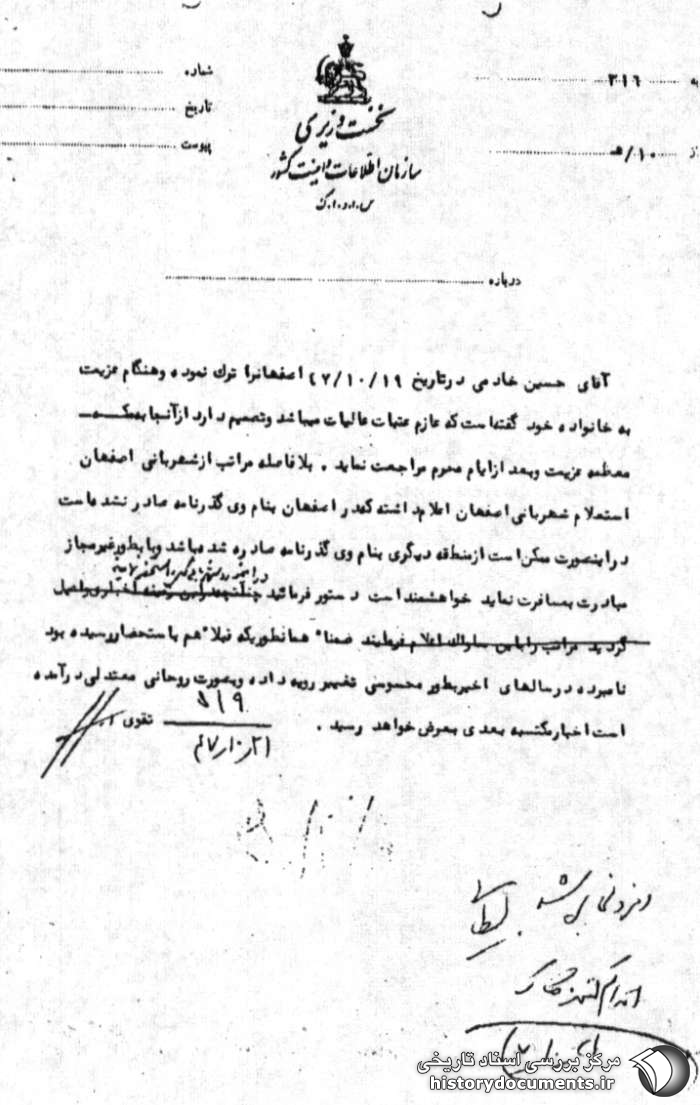 شماره
تاریخ
پیوست
به ۳۱۶
از ۱۰/ﻫ
نخست وزیری
سازمان اطلاعات و امنیت کشور
س.ا.و.ا.ک
درباره
آقای حسین خادمی در تاریخ ۴۷/۱۰/۱۹ اصفهانرا ترک نموده وهنگام عزیمت
به خانواده خود گفته است که عازم عتبات عالیات میباشد وتصمیم دارد ازآنجا بمکـــه
معظمه عزیمت وبعد ازایام محرم مراجعت نماید . بلافاصله مراتب ازشهربانی اصفهان
استعلام شهربانی اصفهان اعلام داشته که در اصفهان بنام وی گذرنامه صادر نشده است
دراینصورت ممکن است ازمنطقه دیگری بنام وی گذرنامه صادره شده باشد ویا بطورغیرمجاز
مبادرت بمسافرت نماید خواهشمند است دستور فرمائید چنانچه دراین زمینه اخباری واصل
گردید مراتب را باین ساواک اعلام فرمایند ضمنا" همانطوریکه قبلا" هم باستحضاررسیده بود
نامبرده درسالهای اخیربطور محسوسی تغییر رویه داده وبصورت روحانی معتدلی درآمده
است اخبارمکتسبه بعدی بعرض خواهد رسید .
تقوی
۴۷/۱۰/۲۱
مرکز بررسی اسناد تاریخی
historydocuments.ir